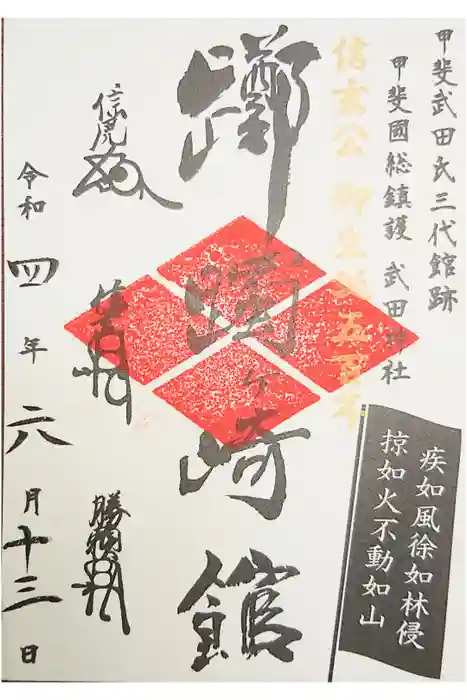 甲斐武田氏三代館跡
甲斐國総鎮護 武田神社
信玄公 御生誕五百年
躑躅ヶ崎館
信虎
信玄
勝頼
令和四年六月十三日
疾如風徐如林侵
掠如火不動如山